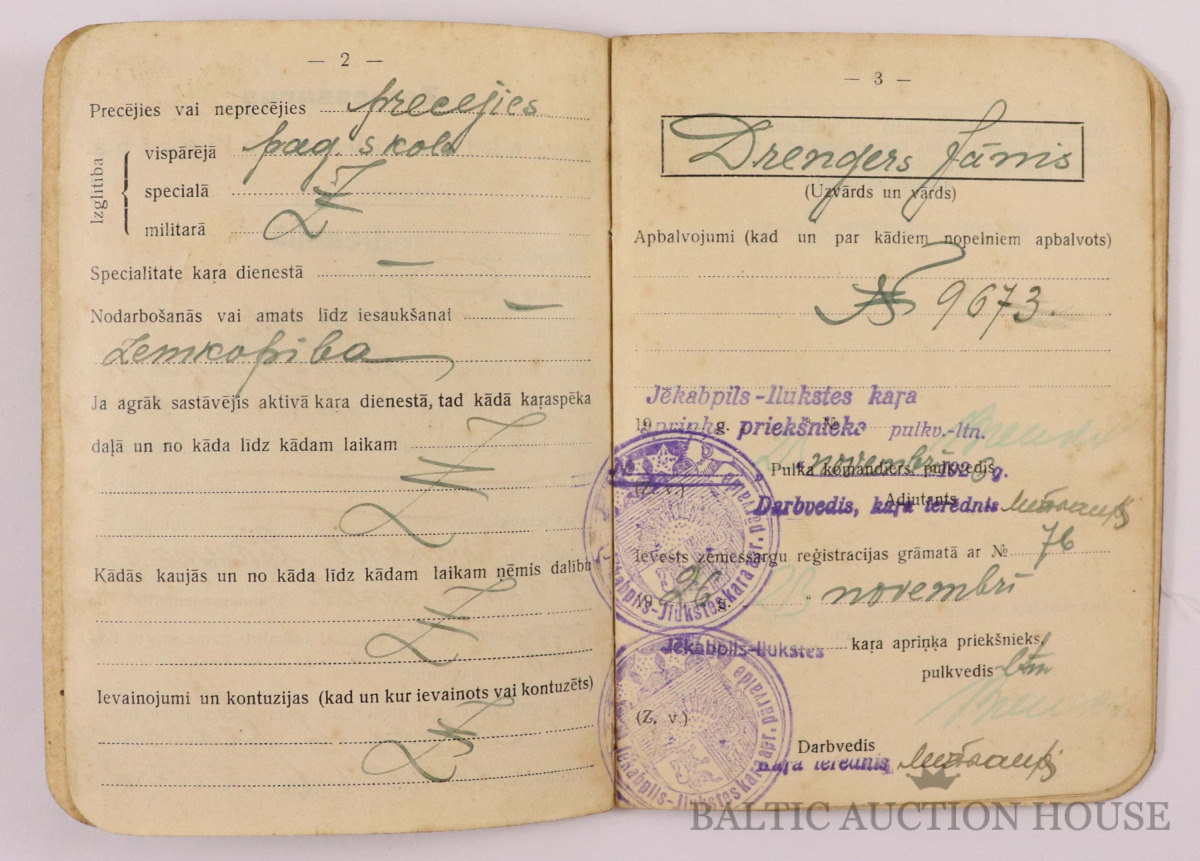 — 2 —
Precējies vai neprecējies precējies
Izglītība
vispārējā pag. skola
specialā
militarā
Specialitate kaŗa dienestā —
Nodarbošanās vai amats līdz iesaukšanai —
Zemkopība
Ja agrāk sastāvējis aktivā kaŗa dienestā, tad kādā kaŗaspēka
daļā un no kāda līdz kādam laikam
Kādās kaujās un no kāda līdz kādam laikam ņēmis dalību
Ievainojumi un kontuzijas (kad un kur ievainots vai kontuzēts)
— 3 —
Drengers Jānis
(Uzvārds un vārds)
Apbalvojumi (kad un par kādiem nopelniem apbalvots)
№ 9673.
Jēkabpils-Ilukstes kaŗa
19 g. №
apriņķa priekšnieks pulkv.-ltn.
novembrī 192 g.
Pulka komandieris, pulkvedis
(Z. v.)
Adjutants
Darbvedis, kaŗa ierēdnis
Ievests zemessargu reģistracijas grāmatā ar № 76
19 26 g. 23 " novembrī
Jēkabpils-Ilukstes kaŗa apriņķa priekšnieks,
pulkvedis ltn
(Z. v.)
Darbvedis
kaŗa ierēdnis
Jēkabpils-Ilukstes kaŗa apr. pārvalde
Jēkabpils-Ilukstes kaŗa apr. pārvalde
BALTIC AUCTION HOUSE